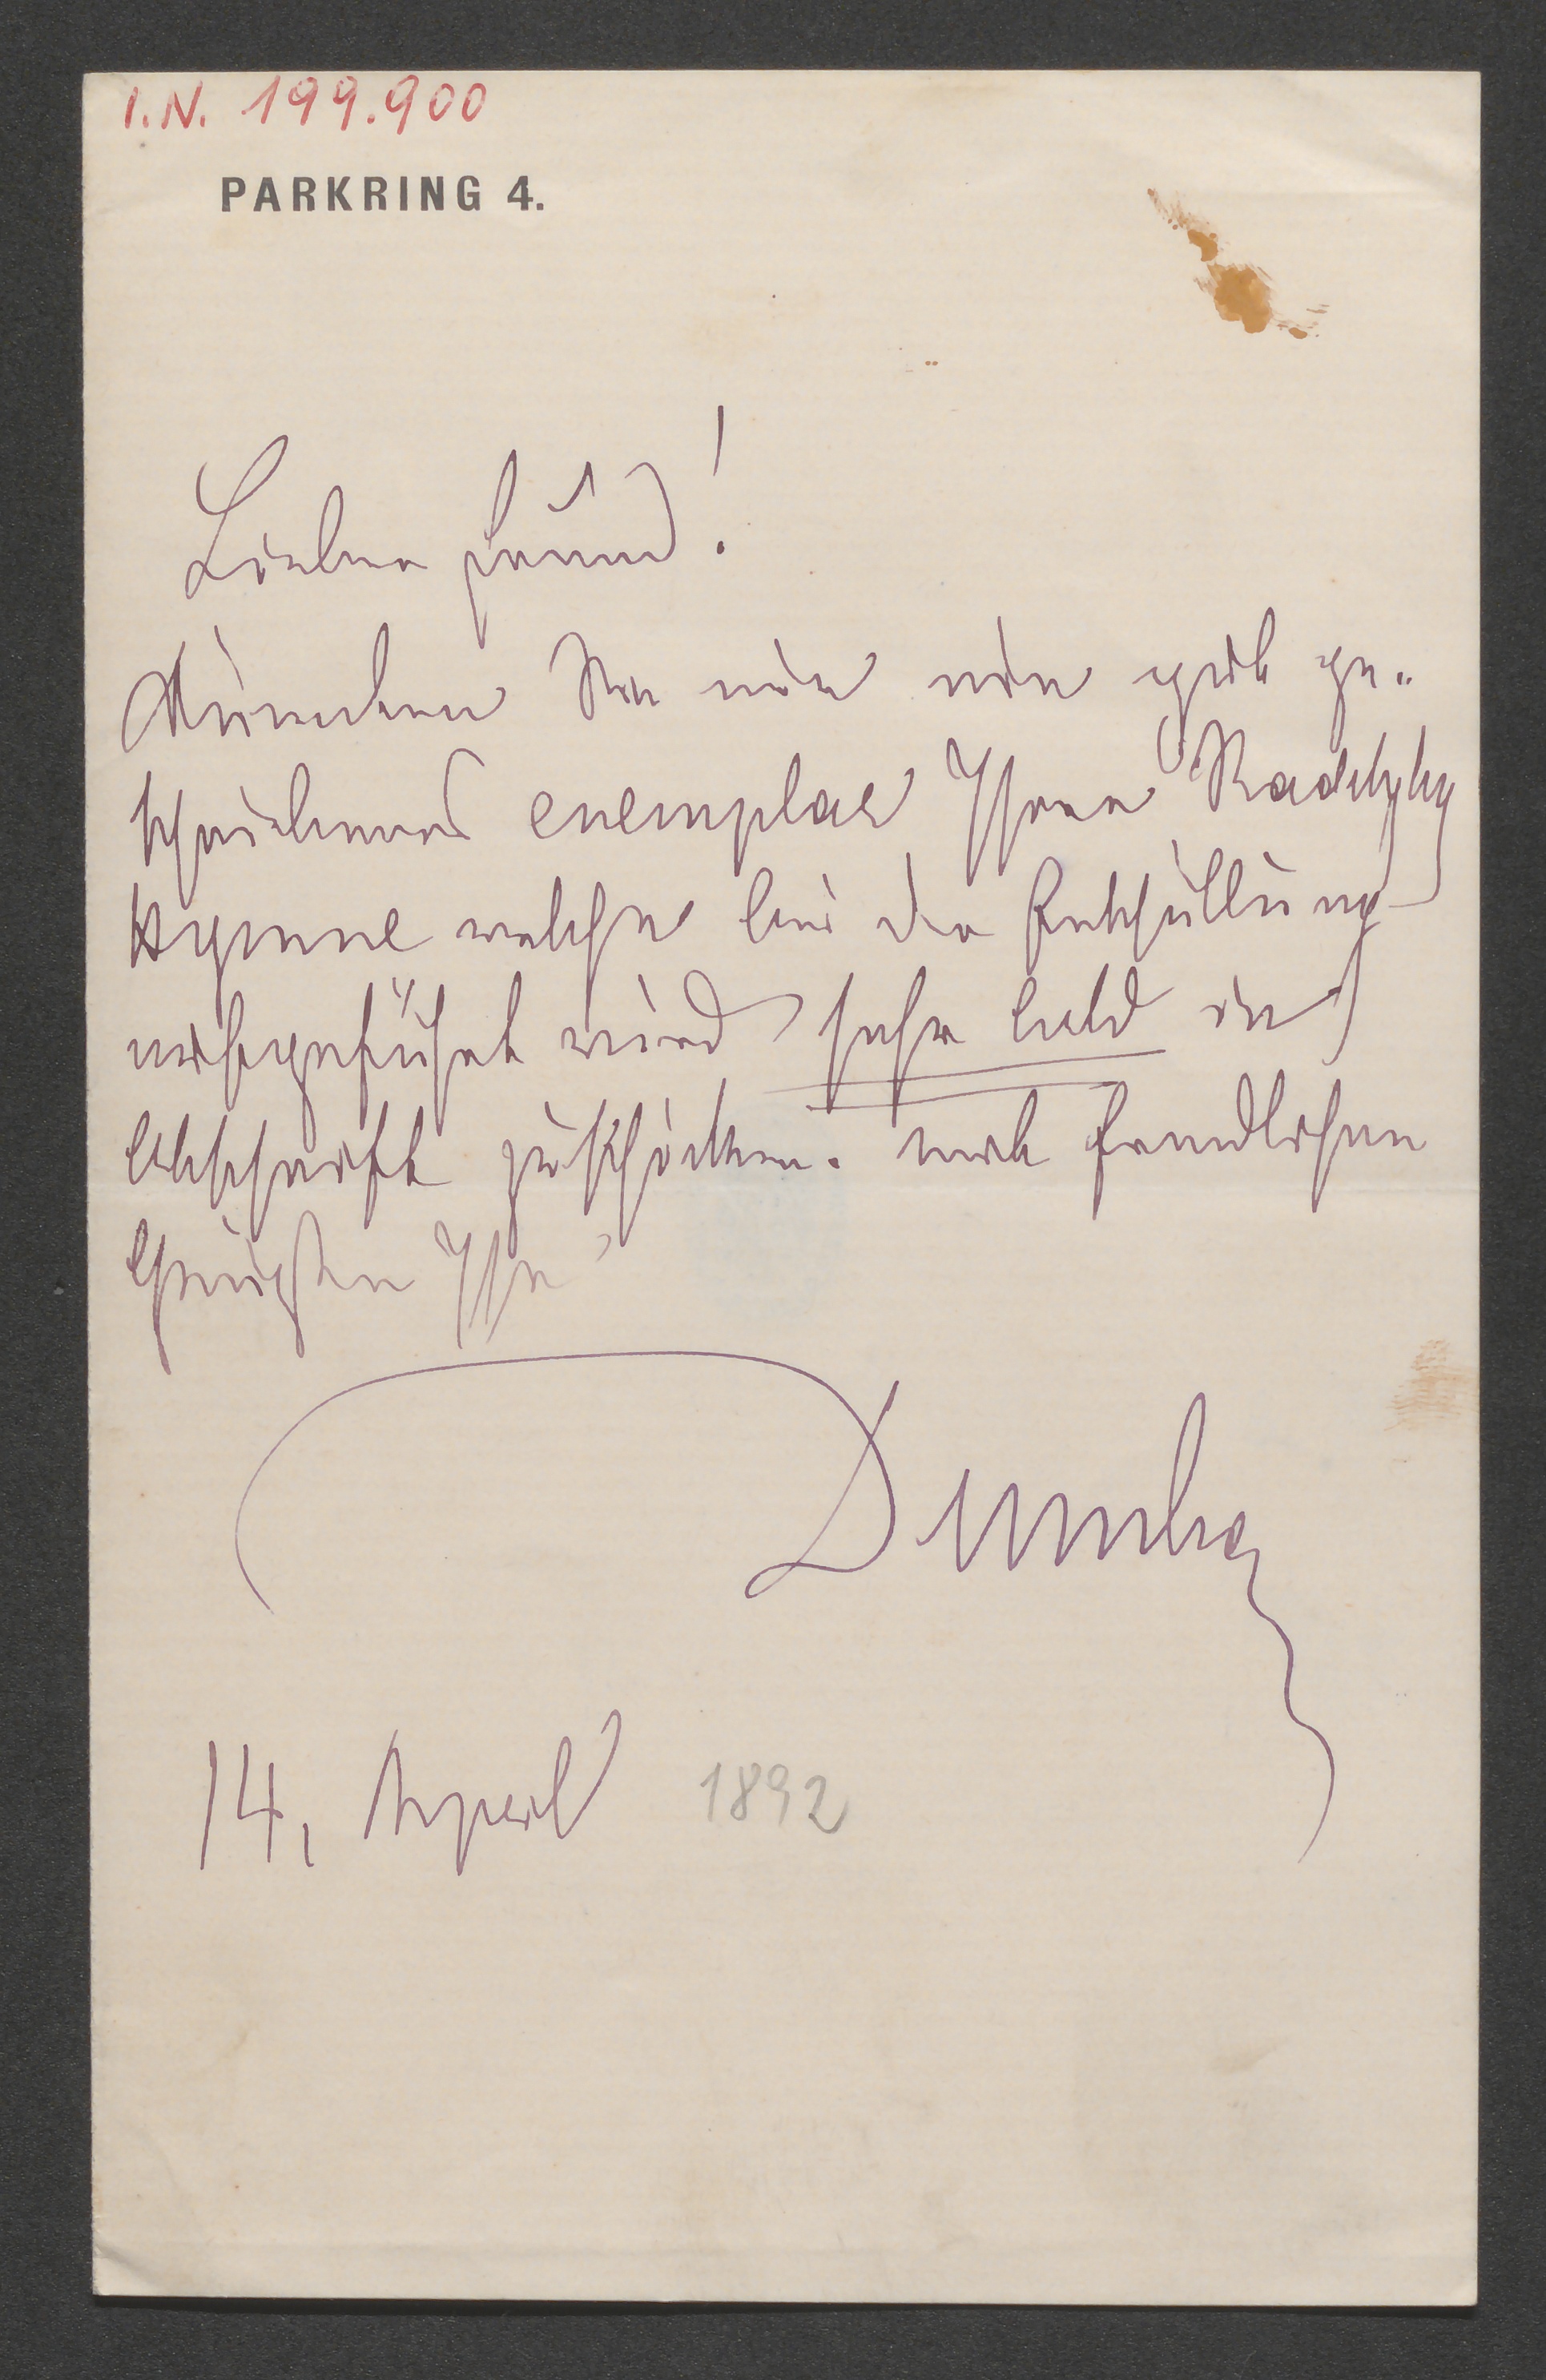 I.N. 199.900
PARKRING 4.
Lieber Freund!
Wünschen Sie mir ein gut ge-
schriebenes exemplar Ihrer Radetzky
Hymne welche bei der Enthüllung
aufgeführt wird sehr bald in
Abschrift zuschicken. mit freundlichen
Grüßen Ihr
Dumba
14. April 1892